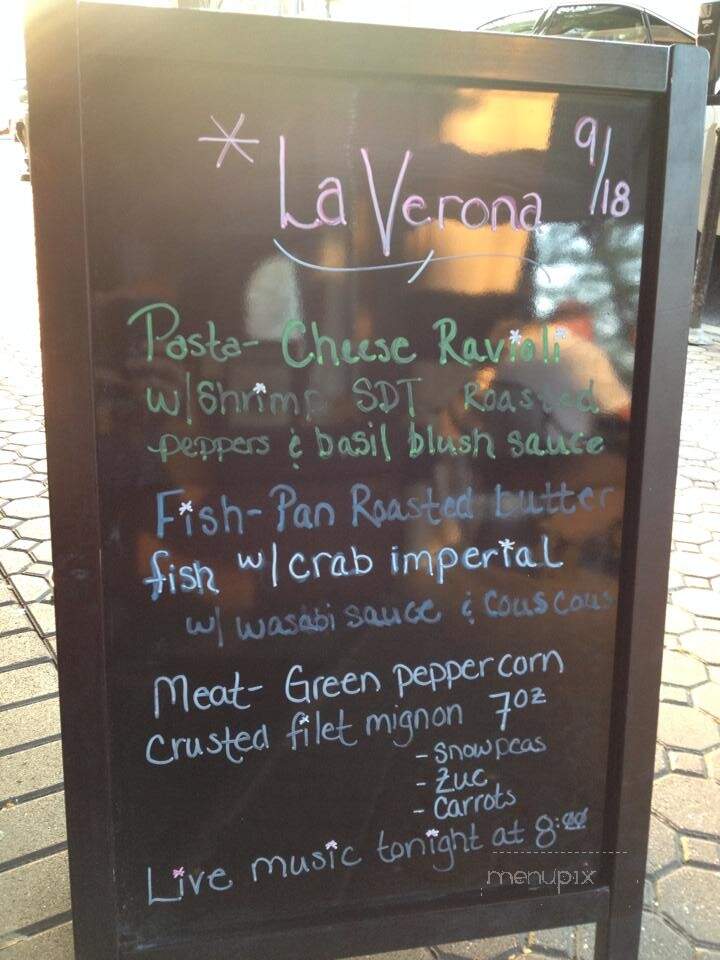 * La Verona 9/18
Pasta- Cheese Ravioli
w/Shrimp SDT Roasted
peppers & basil blush sauce
Fish- Pan Roasted butter
fish w/ crab imperial
w/ wasabi sauce & couscous
Meat- Green peppercorn
Crusted filet mignon 7oz
- Snowpeas
- Zuc
- Carrots
Live music tonight at 8:00
menupix